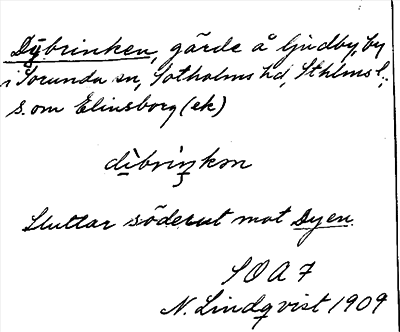 Dybrinken, gärde å Ljudby, by
i Sorunda sn, Sotholms hd, Sthlms l.;
s. om Elinsborg (ek)
dìbriŋkən
Sluttar söderut mot Dyen.
SOA 7
N. Lindqvist 1909